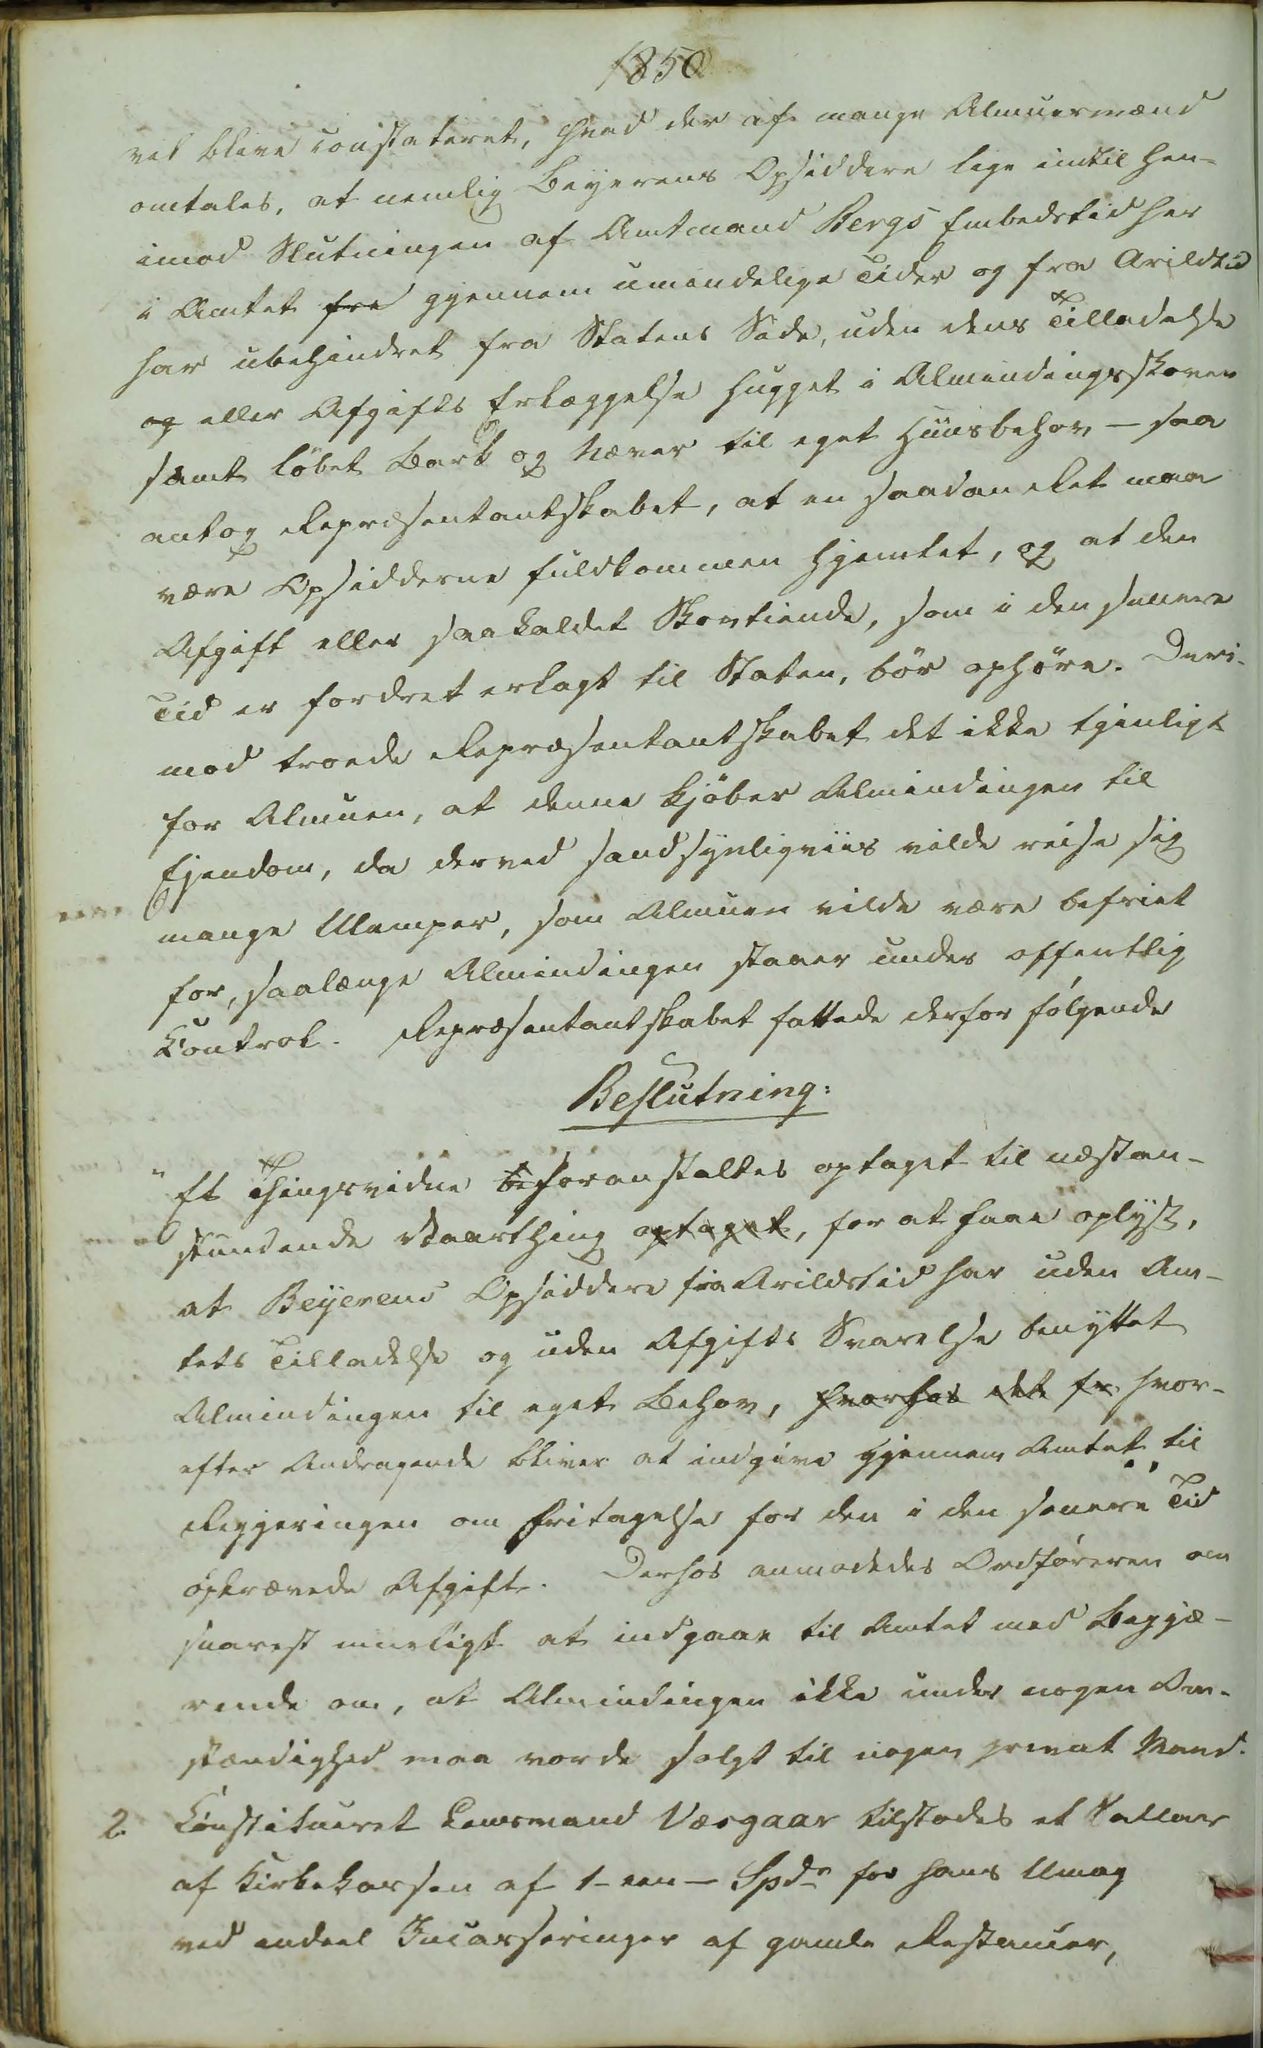 1850
vel blive constateret, hvad der af mange Almuesmænd
omtales, at nemlig Beyerens Opsiddere lige indtil hen-
imod Slutningen af Amtmand Bergs Embedstid her
i Amtet fra gjennem umindelige Tider og fra Arildstid
har ubehindret fra Statens Side, uden dens Tilladelse
og eller Afgifts Erlæggelse hugget i Almindingsskoven
samt løbet Bark og Næver til eget Huusbehov – saa
antog Repræsentantskabet, at en saadan Ret maa
være Opsidderne fuldkommen hjemlet, og at den
Afgift eller saakaldet Skovtiende, som i den senere
Tid er fordret erlagt til Staten, bør ophøre. Deri-
mod troede Repræsentantskabet det ikke tjenligt
for Almuen, at denne kjøber Almindingen til
Ejendom, da derved sandsynligviis vilde reise sig
mange Ulemper, som Almuen vilde være befriet
for, saalænge Almindingen staaer under offentlig
Kontrol. Repræsentantskabet fattede derfor følgende
Beslutning:
"Et Thingsvidne be foranstaltes optaget til næstan-
stundende Vaarthing optaget, for at faae oplyst,
at Beyerens Opsiddere fra Arildstid har uden Am-
tets Tilladelse og uden Afgifts Svarelse benyttet
Almindingen til eget Behov, hvorhos det fr hvor-
efter Andragende bliver at indgive gjennem Amtet til
Regjeringen om Fritagelse for den i den senere Tid
opkrævede Afgift. Derhos anmodedes Ordføreren om
snarest mueligt at indgaae til Amtet med Begjæ-
rende om, at Almindingen ikke under nogen Om-
stændighed maa vorde solgt til nogen privat Mand.
2. Constitueret Lensmand Væsgaar tilstodes et Sallær
af Kirkekassen af 1 – een – Spdr for hans Umag
ved endeel Incasseringer af gamle Restancer,